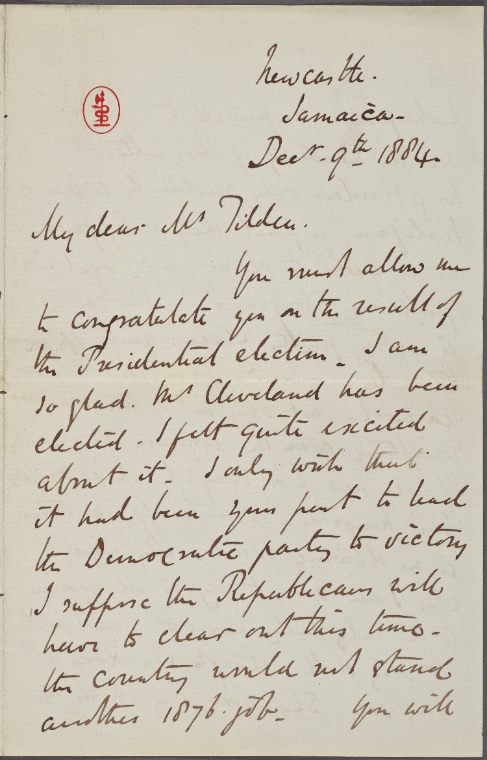 Newcastle.
Jamaica.
Decr. 9th 1884.
My dear Mr Tilden.
You must allow me
to congratulate you on the result of
the Presidential election. I am
so glad. Mr Cleveland has been
elected. I felt quite excited
about it. I only wish that
it had been your part to lead
the Democratic party to victory
I suppose the Republicans will
have to clear out this time.
the country would not stand
another 1876 job. You will